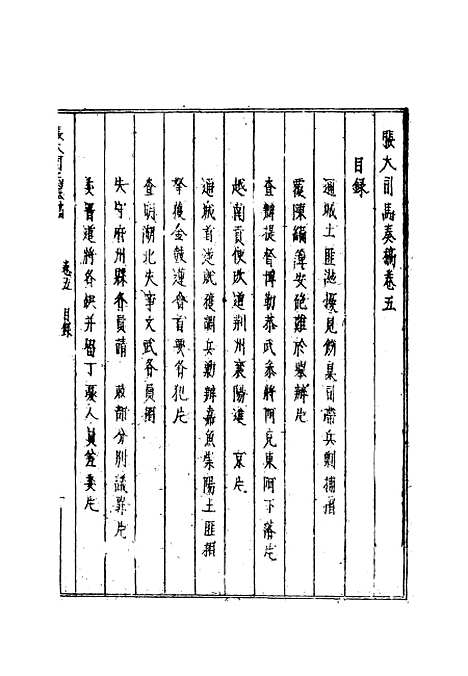 張大司馬奏稿卷五
目錄
通城土匪滋擾見飭臬司帶兵剿捕摺
覆陳續譚安砲難於鑒辦片
查辦提督博勒恭武參將阿克東阿下落片
越南貢使改道荊州襄陽進 京片
通城首逆就獲調兵剿辦嘉魚崇陽土匪摺
拏獲金鼓蓮會首要各犯片
查明湖北失事文武各員摺
失守府州縣各員請 敕部分別議罪片
美晉道將各缺并留丁憂人員差委片
張大司馬奏稿 卷五 目錄 一